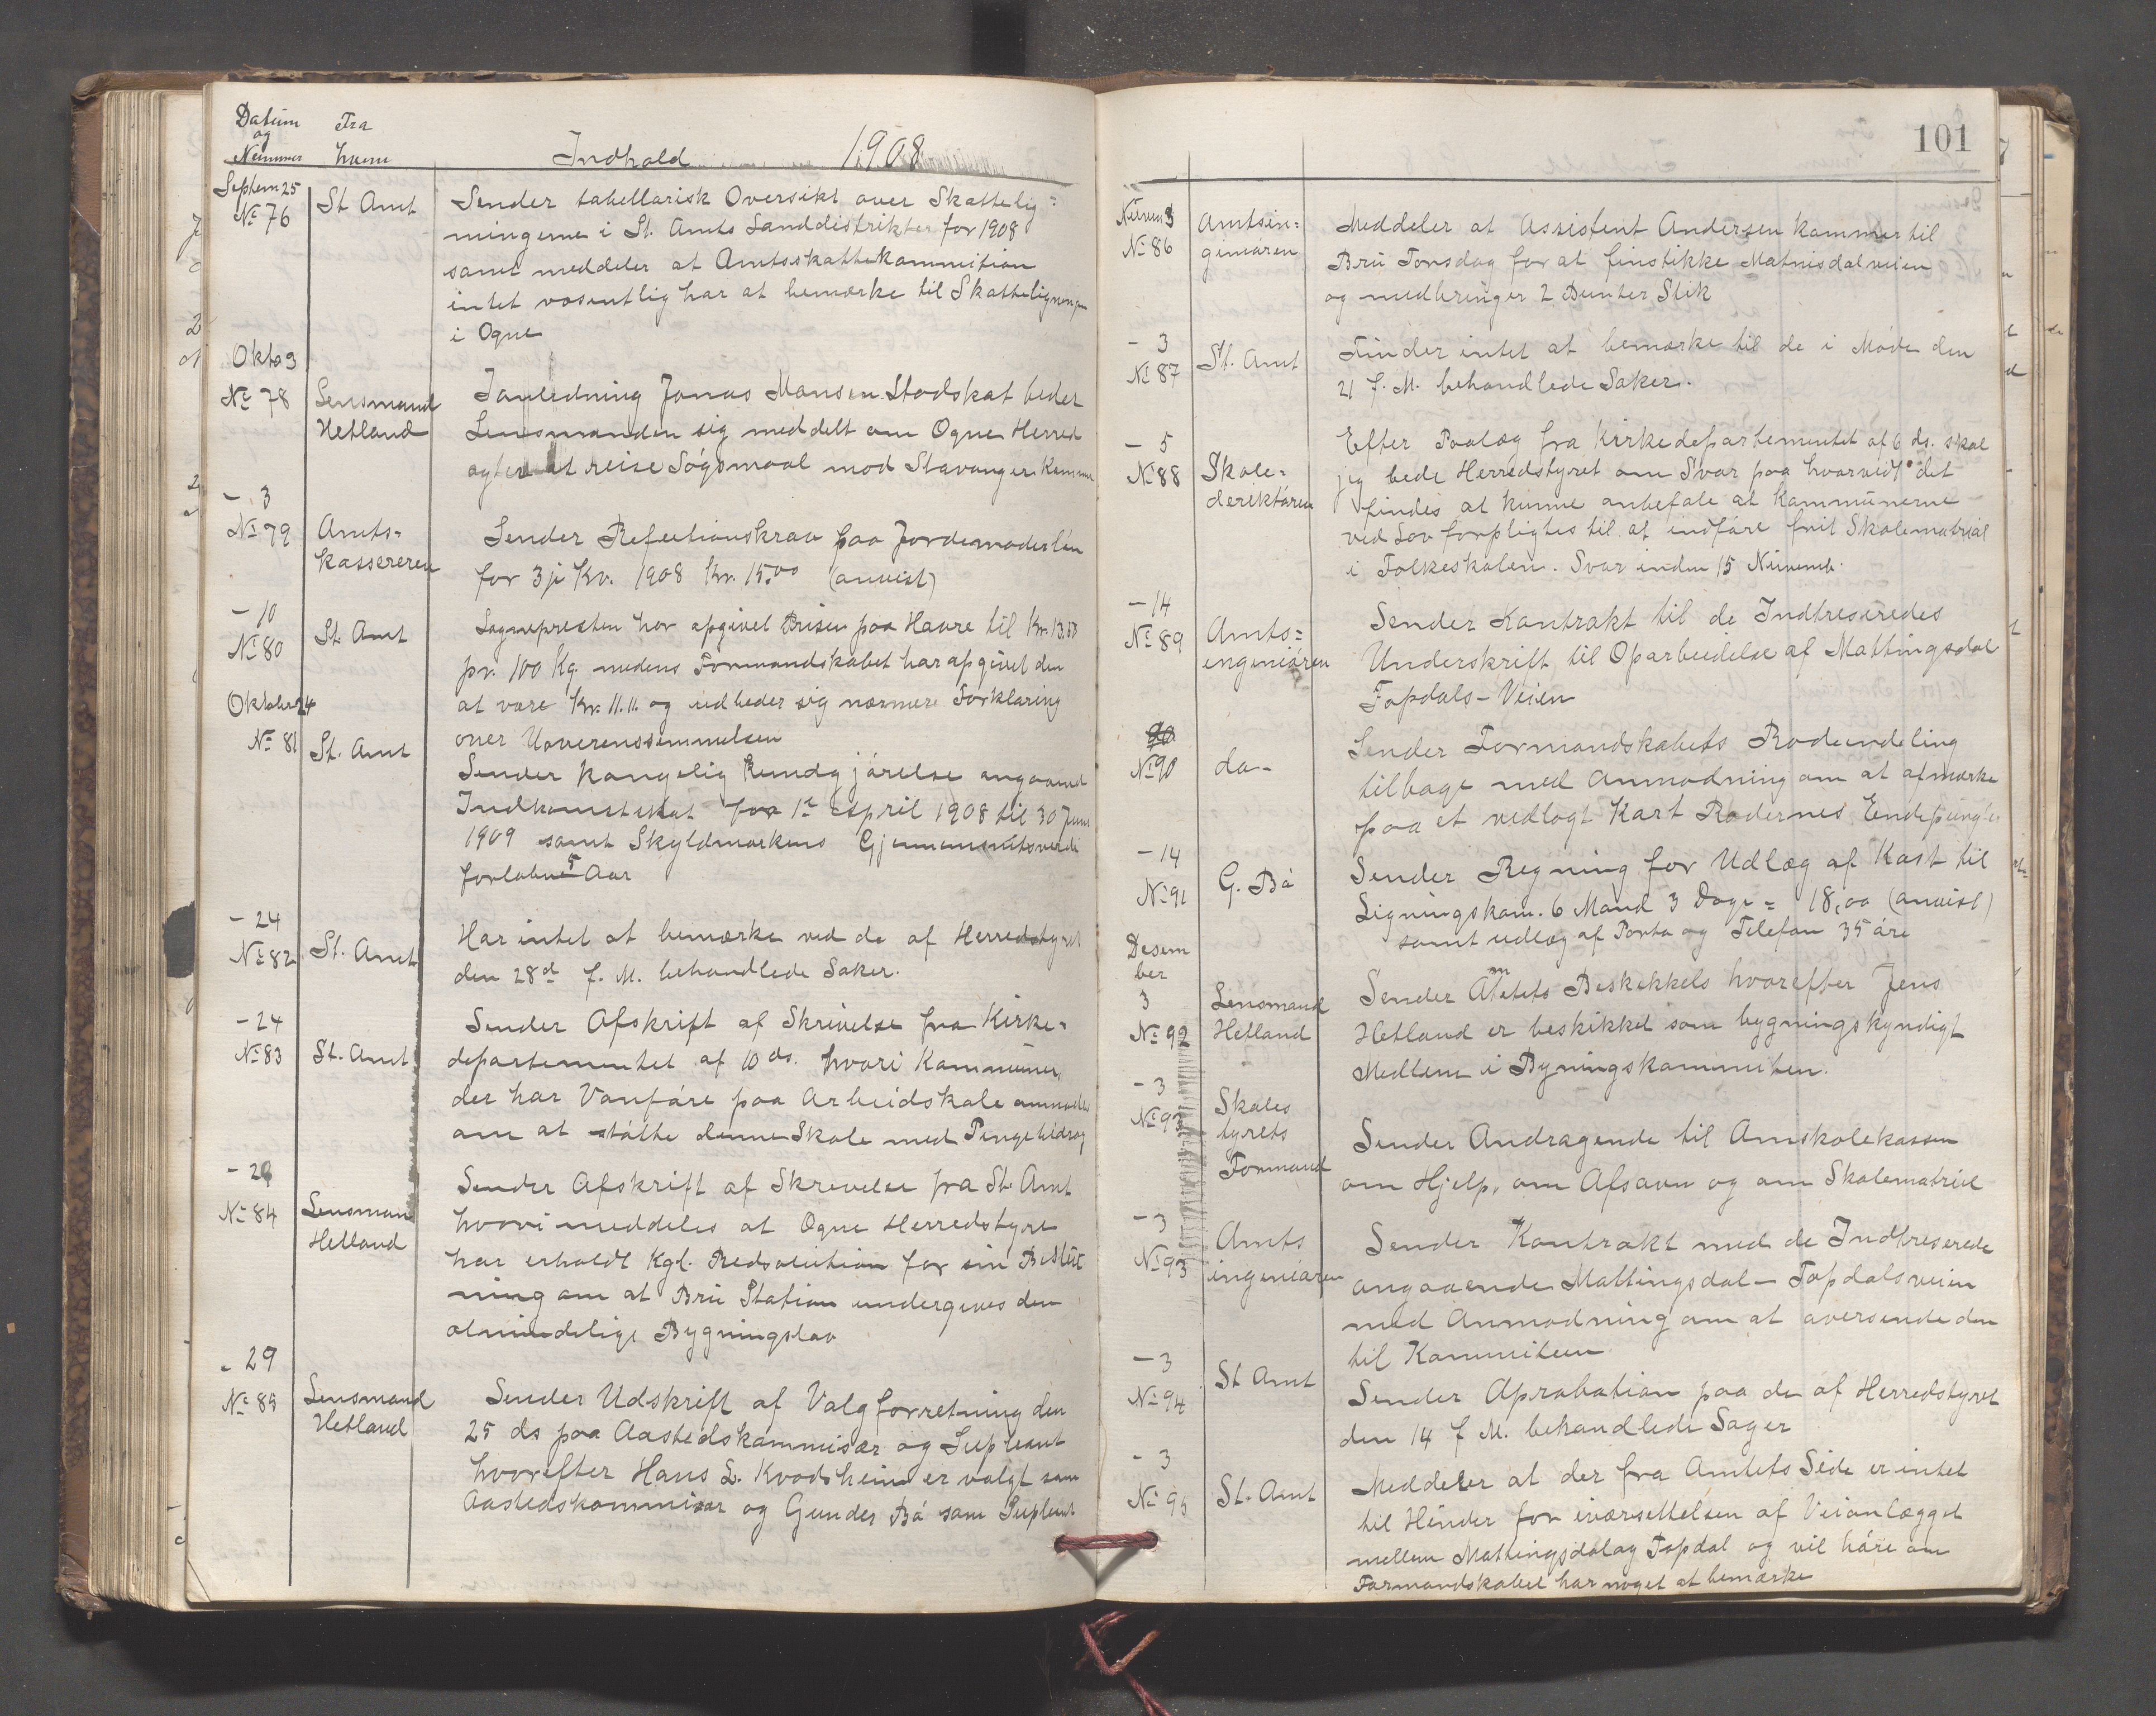 Datum
og
Nummer
Fra
hvem
Indhold 1908
Septem 25
No 76
St Amt
Sender tabellarisk Oversikt over Skattelig=
ningerne i St. Amts Landdistrikter for 1908
samt meddeler at Amtsskattekommition
intet vosentlig har at bemærke til Skatteligningen
i Ogne
Okto 3
No 78
Lensmand
Hetland
Ianledning Jonas Monsen Stodskat beder
Lensmanden sig meddelt om Ogne Herred
agter at reise Søgsmaal mod Stavanger Komune
- 3
No 79
Amts-
kassereren
Sender Refutionskrav paa Jordemoderløn
for 3je Kv. 1908 Kr. 15.00 (anvist)
- 10
No 80
St. Amt
Sognepresten har opgivet Prisen paa Havre til Kr. 13.50
pr. 100 Kg. medens Formandskabet har opgivet den
at vare Kr. 11.11. og udbeder sig nærmere Forklaring
over Uoverenssemmelsen
Oktober 24
No 81
St. Amt
Sender Kongelig Kundgjørelse angaaend
Indkomstskat for 1st April 1908 til 30 Juni
1909 samt Skyldmarkens Gjennemsnitsverdi
forløbne 5 Aar
- 24
No 82
St. Amt
Har intet at bemærke ved de af Herredstyret
den 28de f. M. behandlede Saker.
- 24
No 83
St. Amt
Sender Afskrift af Skrivelse fra Kirke-
departementet af 10 ds. hvori Kommuner,
der har Vanføre paa Arbeidskole anmodes
om at støtte denne Skole med Pengebidrag
No 84
Lensman
Hetland
Sender Afskrift af Skrivelse fra St. Amt
hvori meddeles at Ogne Herredstyre
har erholdt Kgl. Redsolution for sin Beslut
ning om at Bru Station undergives den
almindelige Bygningslov
- 29
No 85
Lensmand
Hetland
Sender Udskrift af Valgforretning den
25 ds paa Aastedskommisær og Supleant
hvorefter Hans L. Kvodsheim er valgt som
Aastedskommisær og Gunder Bø som Suplent
101
Nuvem 3
No 86
Amtsin=
geniøren
Meddeler at Assistent Andersen kommer til
Bru Torsdag for at finstikke Matnisdalveien
og medbringer 2 Bunter Stik
- 3
No 87
St. Amt
Finder intet at bemærke til de i Møde den
21 f. M. behandlede Saker.
- 5
No 88
Skole=
deriktøren
Efter Paalæg fra Kirkedepartementet af 6 ds. skal
jeg bede Herredstyret om Svar paa hvorvidt det
findes at kunne anbefale at Kommunerne
ved Lov forpligtes til at indføre frit Skolematrial
i Folkeskolen. Svar inden 15 Nuvemb.
- 14
No 89
Amts=
ingeniøren
Sender Kontrakt til de Indtreseredes
Underskrift til Oparbeidelse af Mattingsdal
Fopdals-Veien
No 90
do-
Sender Formandskabets Rodeindeling
tilbage med Anmodning om at afmærke
paa et vedlagt Kart Rodernes Endepungter
- 14
No 91
G. Bø
Sender Regning for Udlæg af Kost til
Ligningskom. 6 Mand 3 Dage = 18,00 (anvist)
samt udlæg af Porto og Telefon 35 øre
Desem
ber
3
No 92
Lensmand
Hetland
Sender Amtets Beskikkels hvorefter Jens
Hetland er beskikket som bygningskyndigt
Medlem i Bygningskommiten.
- 3
No 93
Skoles
tyrets
Formand
Sender Andragende til Amskolekassen
om Hjelp, om Afsavn og om Skolematriel
- 3
No 93
Amts
ingeniøren
Sender Kontrakt med de Indtreserede
angaaende Mattingsdal- Fopdalsveien
med Anmodning om at oversende den
til Kommiteen
- 3
No 94
St Amt
Sender Aprobation paa de af Herredstyret
den 14 f M. behandlede Sager
- 3
No 95
St. Amt
Meddeler at der fra Amtets Side er intet
til Hinder for iværsettelsen af Veianlægget
mellem Mattingsdal og Fopdal og vil høre om
Formandskabet har noget at bemærke